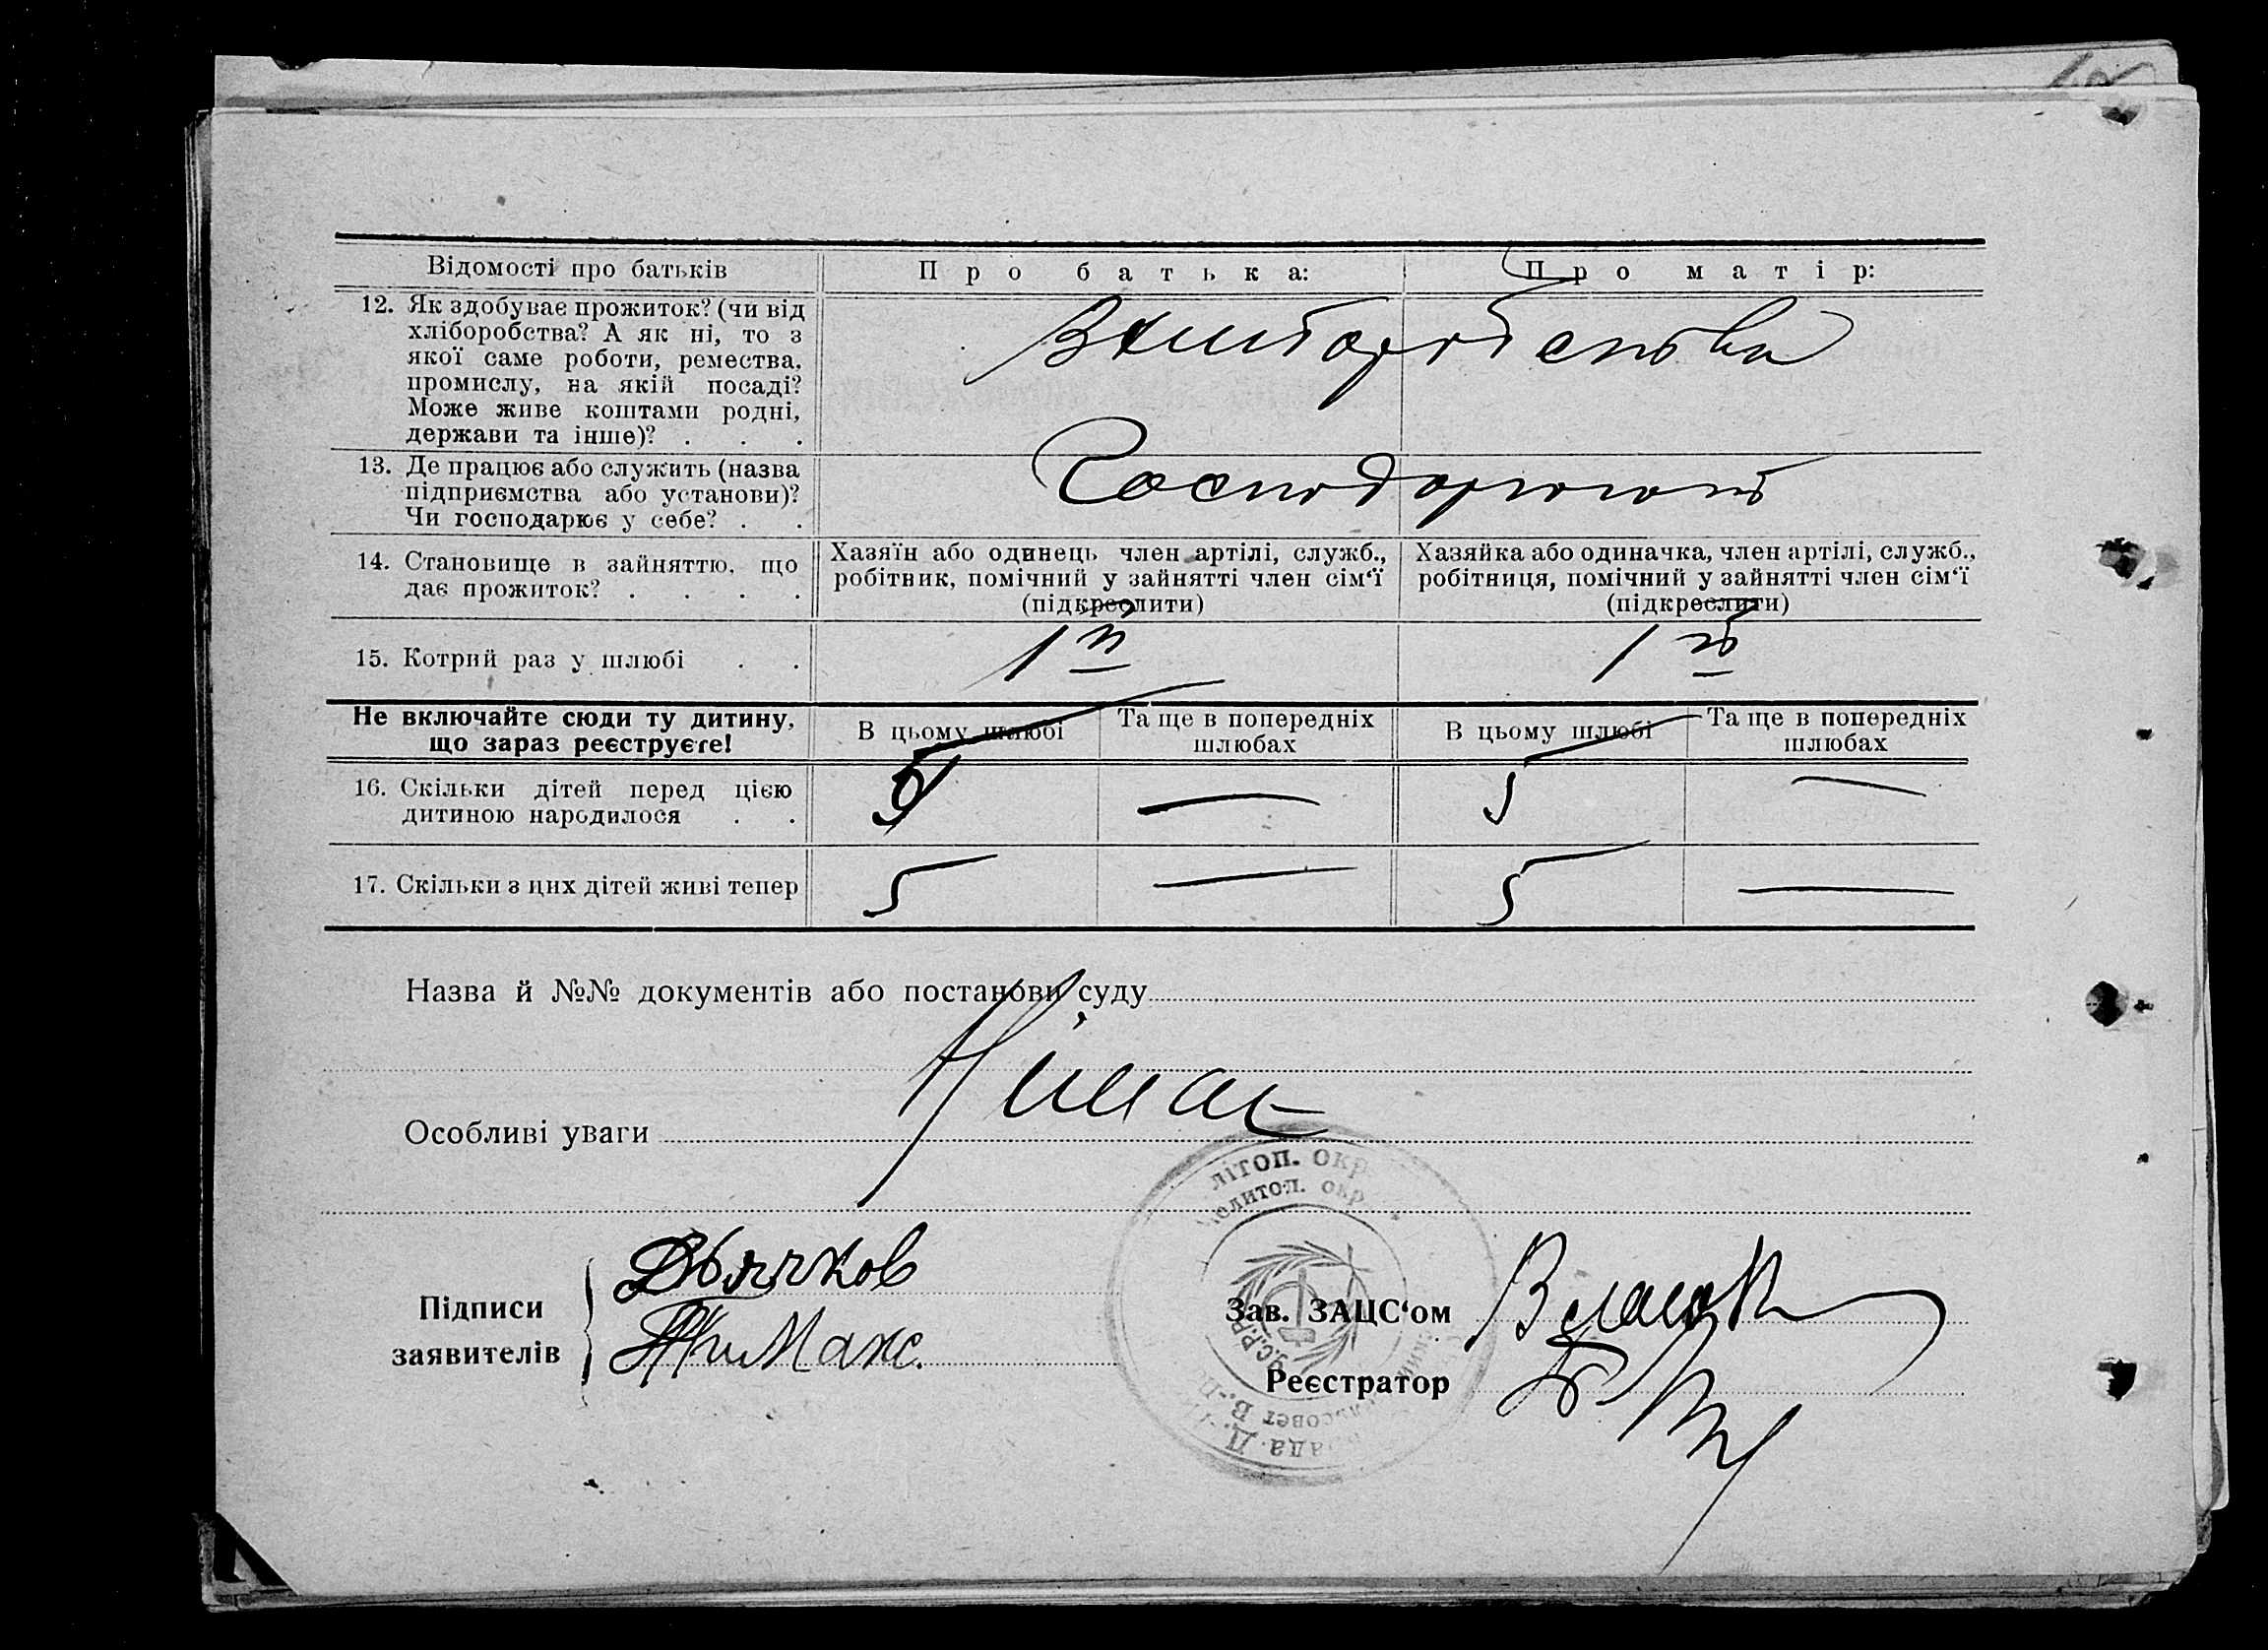 Відомості про батьків
Про батька:
Про матір:
12. Як здобуває прожиток? (чи від
хліборобства? А як ні, то з
якої саме роботи, ремества,
промислу, на якій посаді?
Може живе коштами родні,
держави та інше)? . . .
В хліборобства
13. Де працює або служить (назва
підприємства або установи)?
Чи господарює у себе? . .
Господарюють
14. Становище в зайняттю, що
дає прожиток? . . . .
Хазяїн або одинець член артілі, служб.,
робітвик, помічний у зайнятті член сім‘ї
(підкреслити)
Хазяйка або одиначка, член артілі, служб.,
робітниця, помічний у зайнятті член сім‘ї
(підкреслити)
15. Котрий раз у шлюбі . .
1й
1й
Не включайте сюди ту дитину,
що зараз реєструєте!
В цьому шлюбі
Та ще в попередніх
шлюбах
В цьому шлюбі
Та ще в попередніх
шлюбах
16. Скільки дітей перед цією
дитиною народилося . .
5 — 5 —
17. Скільки з цих дітей живі тепер
5 — 5 —
Назва й №№ документів або постанови суду
Німає
Особливі уваги
літоп. окр
елитоп. окр
Підписи
заявителів
Дьячков
Зав. ЗАЦС‘ом
Реєстратор